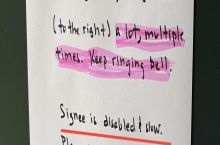 (to the right) a lot, multiple
times. Keep ringing bell.
Signee is disabled & slow.